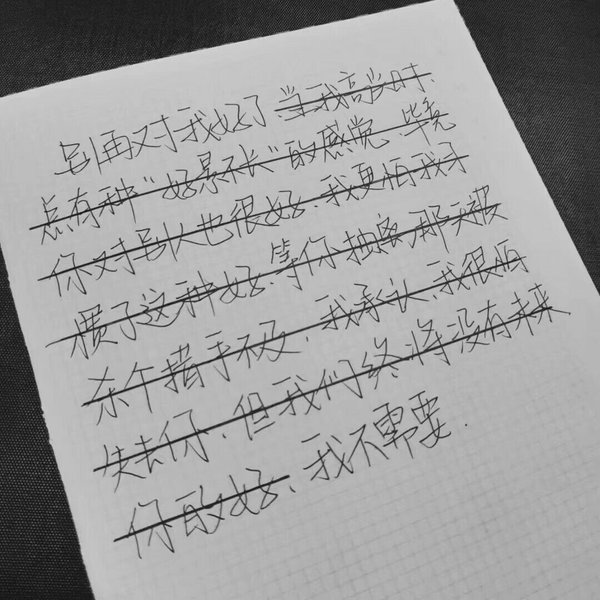 别再对我好了 当我高兴时、
总有种“好景不长”的感觉、毕竟
你对别人也很好、我更怕我习
惯了这种好、等你抽离,那天被
杀个措手不及、我承认、我很怕
失去你、但我们终将没有未来
你的好、我不需要.